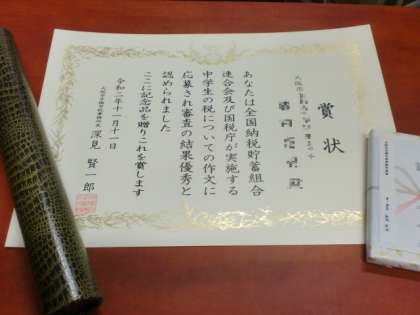 賞状
大阪市
あなたは全国納税貯蓄組合
連合会及び国税庁が実施する
中学生の税についての作文に
応募され審査の結果優秀と
認められました
ここに記念品を贈りこれを賞します
令和二年十一月十一日
深見 賢一郎